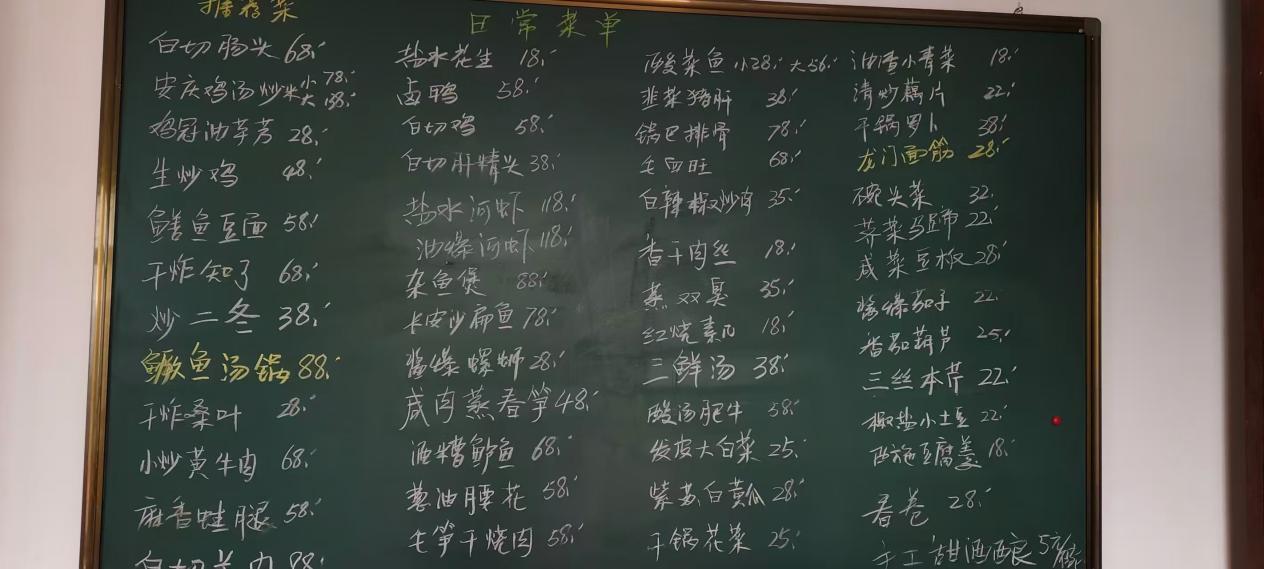 推荐菜
白切肠头 68
安庆鸡汤炒米 小 78 大 138
鸡冠油芋艿 28
生炒鸡 48
鳝鱼豆面 58
干炸知了 68
炒二冬 38
鳜鱼汤锅 88
干炸桑叶 28
小炒黄牛肉 68
麻香蛙腿 58
白切羊肉 88
日常菜单
盐水花生 18
卤鸭 58
白切鸡 58
白切肝精头 38
盐水河虾 118
油爆河虾 118
杂鱼煲 88
木皮沙扁鱼 78
酱爆螺蛳 28
咸肉蒸春笋 48
酒糟鲈鱼 68
葱油腰花 58
毛笋干烧肉 58
酸菜鱼 小28 大56
韭菜猪肝 38
锅巴排骨 78
毛血旺 68
白辣椒炒肉 35
香干肉丝 18
蒸双臭 35
红烧素几 18
三鲜汤 38
酸汤肥牛 58
发皮大白菜 25
紫苏白黄瓜 28
干锅花菜 25
油渣小青菜 18
清炒藕片 22
干锅罗卜 38
龙门面筋 28
碗头菜 32
荠菜马蹄 22
咸菜豆板 28
酱爆茄子 22
香菇葫芦 25
三丝本芹 22
椒盐小土豆 22
西施豆腐羹 18
春卷 28
手工甜酒酿 5元/